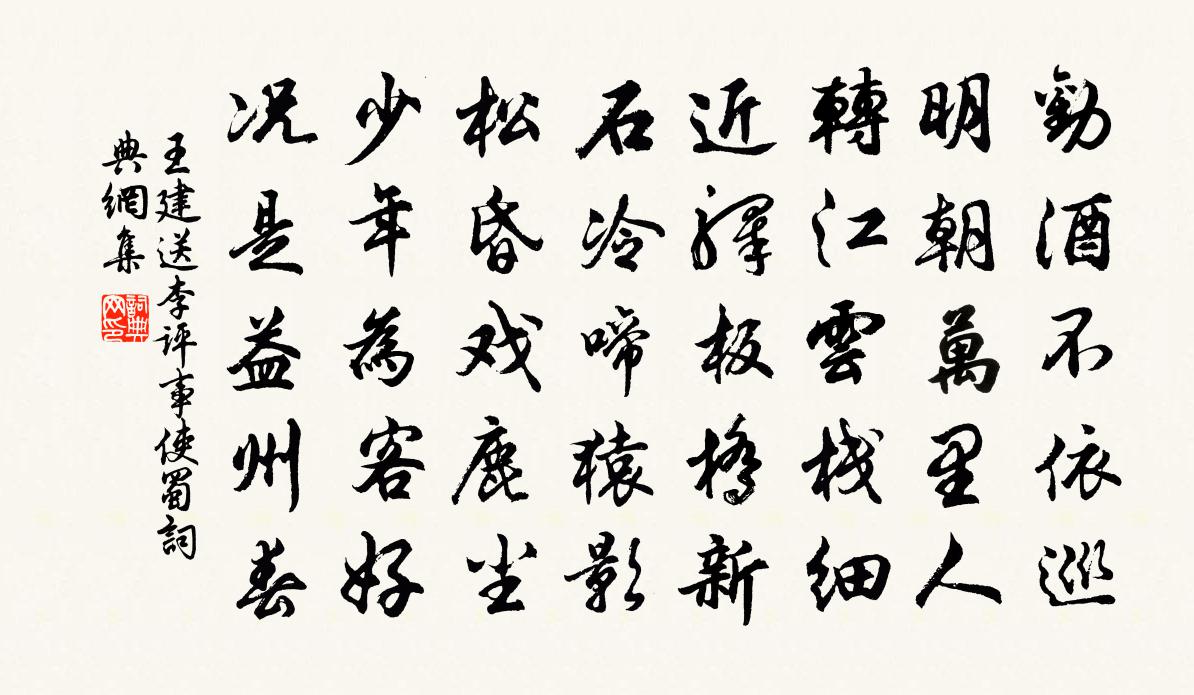 勸酒不依巡
明朝萬里人
轉江雲棧細
近驛板橋新
石冷啼猿影
松昏戏鹿尘
少年為客好
况是益州春
王建送李评事使蜀詞
典網集
詞典
网印